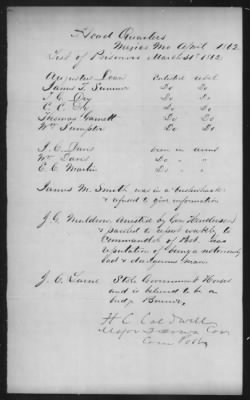 Head Quarters
Mexico Mo April 1862
List of Prisoners March 31st 1862
Augustus Dean enlisted rebel
James T. Sumner Do Do
T. G. Do Do
C. C. Do Do
Thomas Garnett Do Do
Wm Sumpter Do Do
J. C. Davis been in arms
Wm Davis Do " "
E. C. Martin Do " "
James M. Smith was in a
& refused to give information
J. G. Muldrow Arrested by Gen Henderson
& paroled to report weekly to
Commander of Post. has
reputation of being a notoriously
bad & dangerous man
J. C. Stole Government Horses
and is believed to be a
bridge Burner
H. C. Caldwell
Major 3d Iowa Cav
Com Post